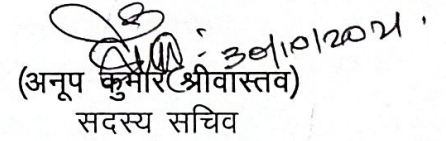 30/10/2021.
(अनूप कुमार श्रीवास्तव)
सदस्य सचिव